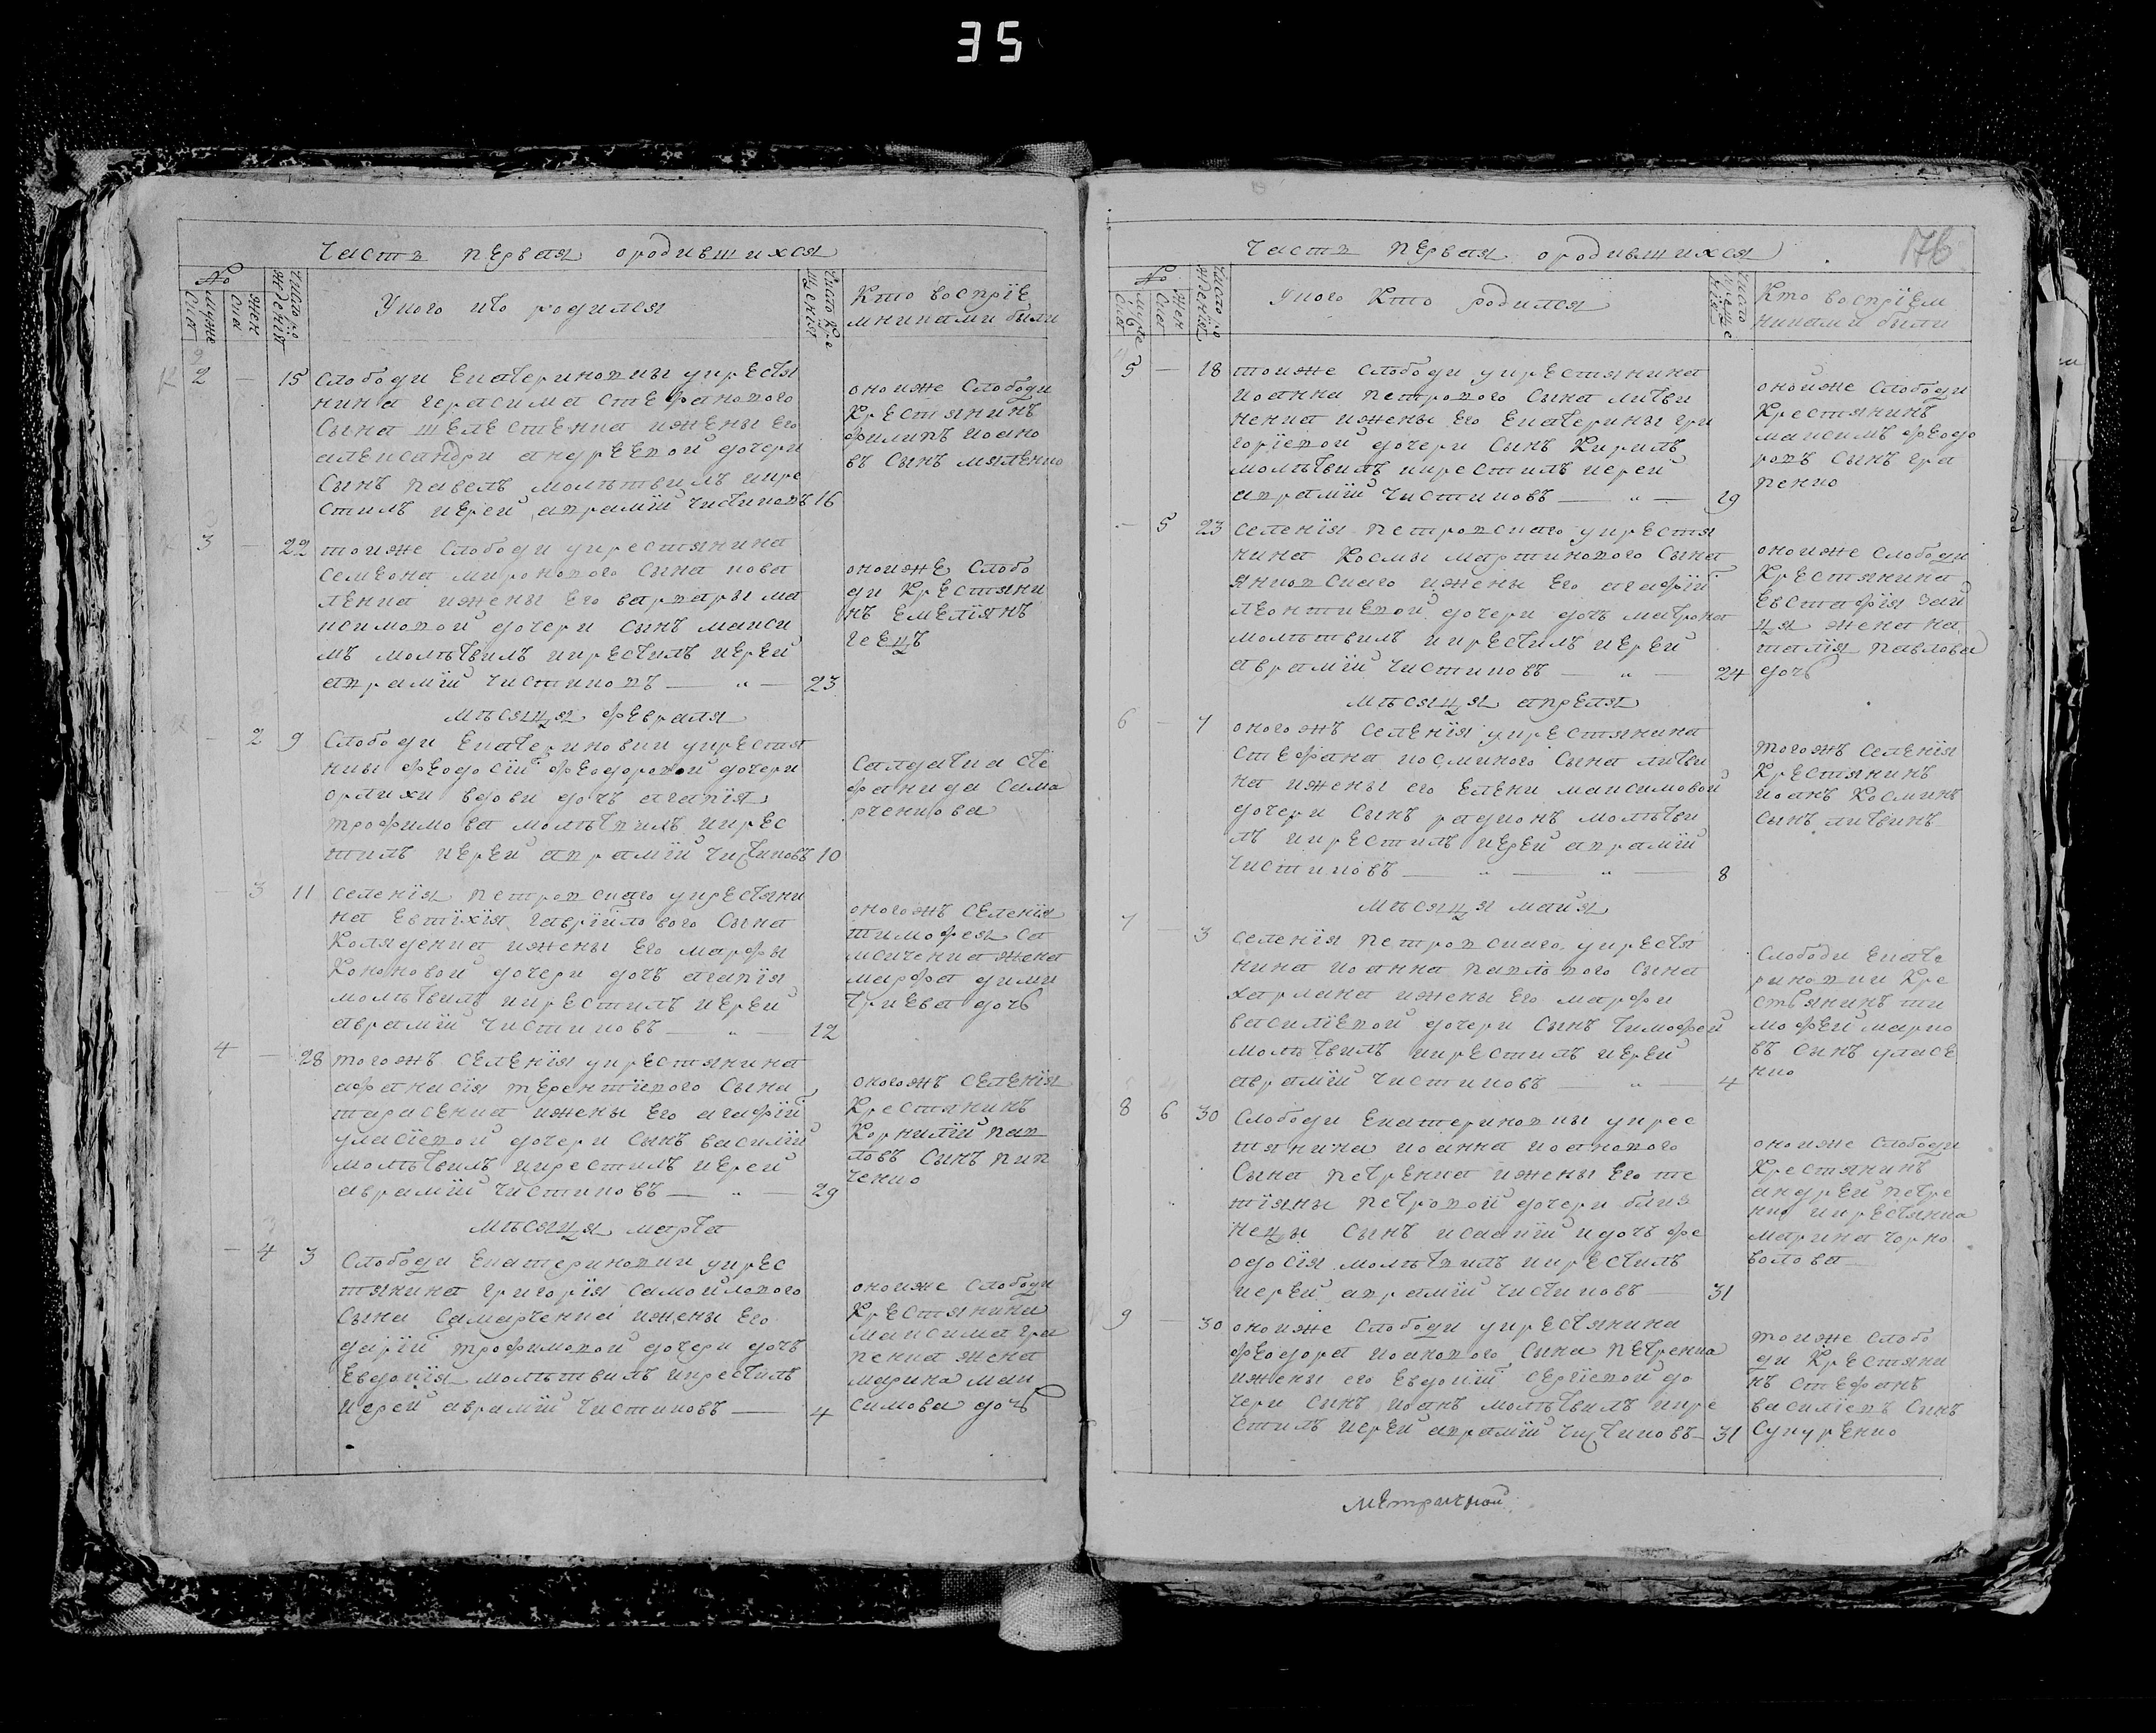 35
Часть первая ородившихся
№
муже
ска
жен
ска
число ро
ждения
Укого кто родился
число кре
щения
Кто восприе
мниками были
2 — 15 Слободи Екатериновки укрестя
нина герасима стефанового
Сына шелестенка ижены Его
александри андреевой дочери
Сынъ павелъ молитвилъ икре
стилъ иерей аврамій Чистиковъ 16
оноиже Слободи
Крестянинъ
филипъ иоано
въ сынъ маленко
3 — 22 тоиже Слободи укрестянина
Семеона миронового Сына кова
ленка ижены Его варвары ма
ксимовой дочери Сынъ макси
мъ молитвилъ икрестилъ иерей
аврамій Чистиковъ — „ — 23
оноиже Слобо
ди Крестяни
нъ Емеліянъ
гаецъ
мѣсяця февраля
— 2 9 Слободи Екатериновки укрестя
нки феодосіи феодоровой дочери
орлихи вдови дочъ агапія
трофимова молитвилъ икрес
тилъ иерей аврамій Чистиковъ 10
Салдатка сте
фанида Сама
рченкова
— 3 11 Селенія петровскаго укрестяни
на Евтіхія гавріилового Сына
Коляденка ижены Его марфы
Кононовой дочери дочъ агапія
молитвилъ икрестилъ иерей
аврамій Чистиковъ — „ — 12
оногожъ Селенія
тимофея са
мойченка жена
марфа дими
триева дочъ
4 — 28 тогожъ Селенія укрестянина
афанасія терентіевого Сына
тарасенка ижены Его агафіи
уласіевой дочери Сынъ василій
молитвилъ икрестилъ иерей
аврамій Чистиковъ — „ — 29
оногожъ Селенія
Крестянинъ
Корнилій пав
ловъ Сынъ пип
ченко
мѣсяця марта
— 4 3 Слободи Екатериновки укрес
тянина григорія Самойлового
Сына Самарченка ижены Его
даріи трофимовой дочери дочъ
Евдокія молитвилъ икрестилъ
иерей аврамій Чистиковъ — 4
оноиже Слободи
Крестянина
максима гра
пенка жена
марина мак
симова дочъ
176
Часть первая ородившихся
№
муже
ска
жен
ска
число ро
ждения
Укого Кто родился
число
креще
нія
Кто воспріем
никами были
5 — 18 тоиже Слободи укрестянина
иоанна петрового Сына литви
ненка ижены Его Екатерины гри
горіевой дочери Сынъ Кирилъ
молитвилъ икрестилъ иерей
аврамій Чистиковъ — „ — 19
оноиже Слободи
Крестянинъ
максимъ феодо
ровъ Сынъ гра
пенко
— 5 23 Селенія петровскаго укрестя
нина Космы мартинового Сына
янковскаго ижены Его агафіи
леонтиевой дочери дочъ матрона
молитвилъ икрестилъ иерей
аврамій Чистиковъ — „ — 24
оноиже Слободи
Крестянина
Евстафія зай
ця жена на
талія павлова
дочъ
мѣсяця апреля
6 — 7 оногожъ Селенія укрестянина
Стефана косминого Сына литви
на ижены его Елени максимовой
дочери Сынъ радионъ молитви
лъ икрестилъ иерей аврамій
Чистиковъ — „ — „ — 8
тогожъ Селенія
Крестянинъ
иоанъ Косминъ
Сынъ литвинъ
мѣсяця майя
7 — 3 Селенія петровскаго укрестя
нина иоанна павлового Сына
харлана ижены Его марфи
василіевой дочери Сынъ Тимофей
молитвилъ икрестилъ иерей
аврамій Чистиковъ — „ — 4
Слободи Екате
риновки Кре
стьянинъ ти
мофей марко
въ синъ уласе
нко
8 6 30 Слободи Екатериновки укрес
тянина иоанна иоанового
Сына петренка ижены Его та
тіяны петровой дочери близ
нецы Сынъ исакій идочъ фе
одосія молитвилъ икрестилъ
иерей аврамій Чистиковъ — 31
оноиже Слободи
Крестянинъ
андрей петре
нко икрестянка
марина чорно
волова
9 — 30 оноиже Слободи укрестянина
феодора иоанового Сына петренка
ижены его Евдокіи Сергіевой до
чери Сынъ иоанъ молитвилъ икре
стилъ иерей аврамій Чистиковъ — 31
тоиже Слобо
ди Крестяни
нъ Стефанъ
василіевъ Сынъ
Сукуренко
метрической